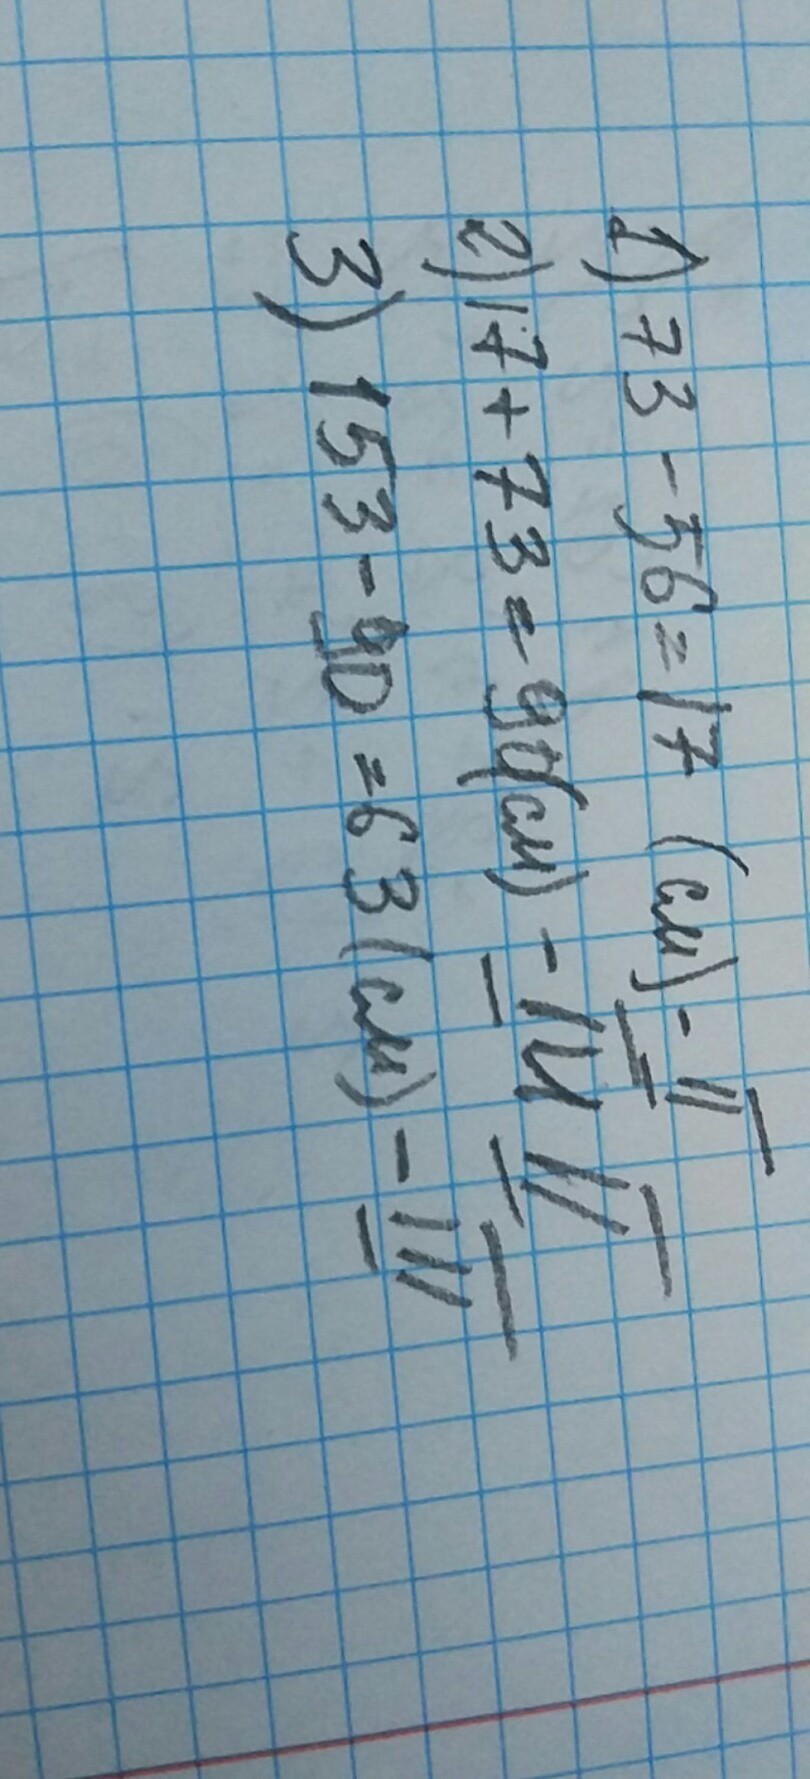 1) 73 - 56 = 17 (см) - II
2) 17 + 73 = 90 (см) - I и II
3) 153 - 90 = 63 (см) - III